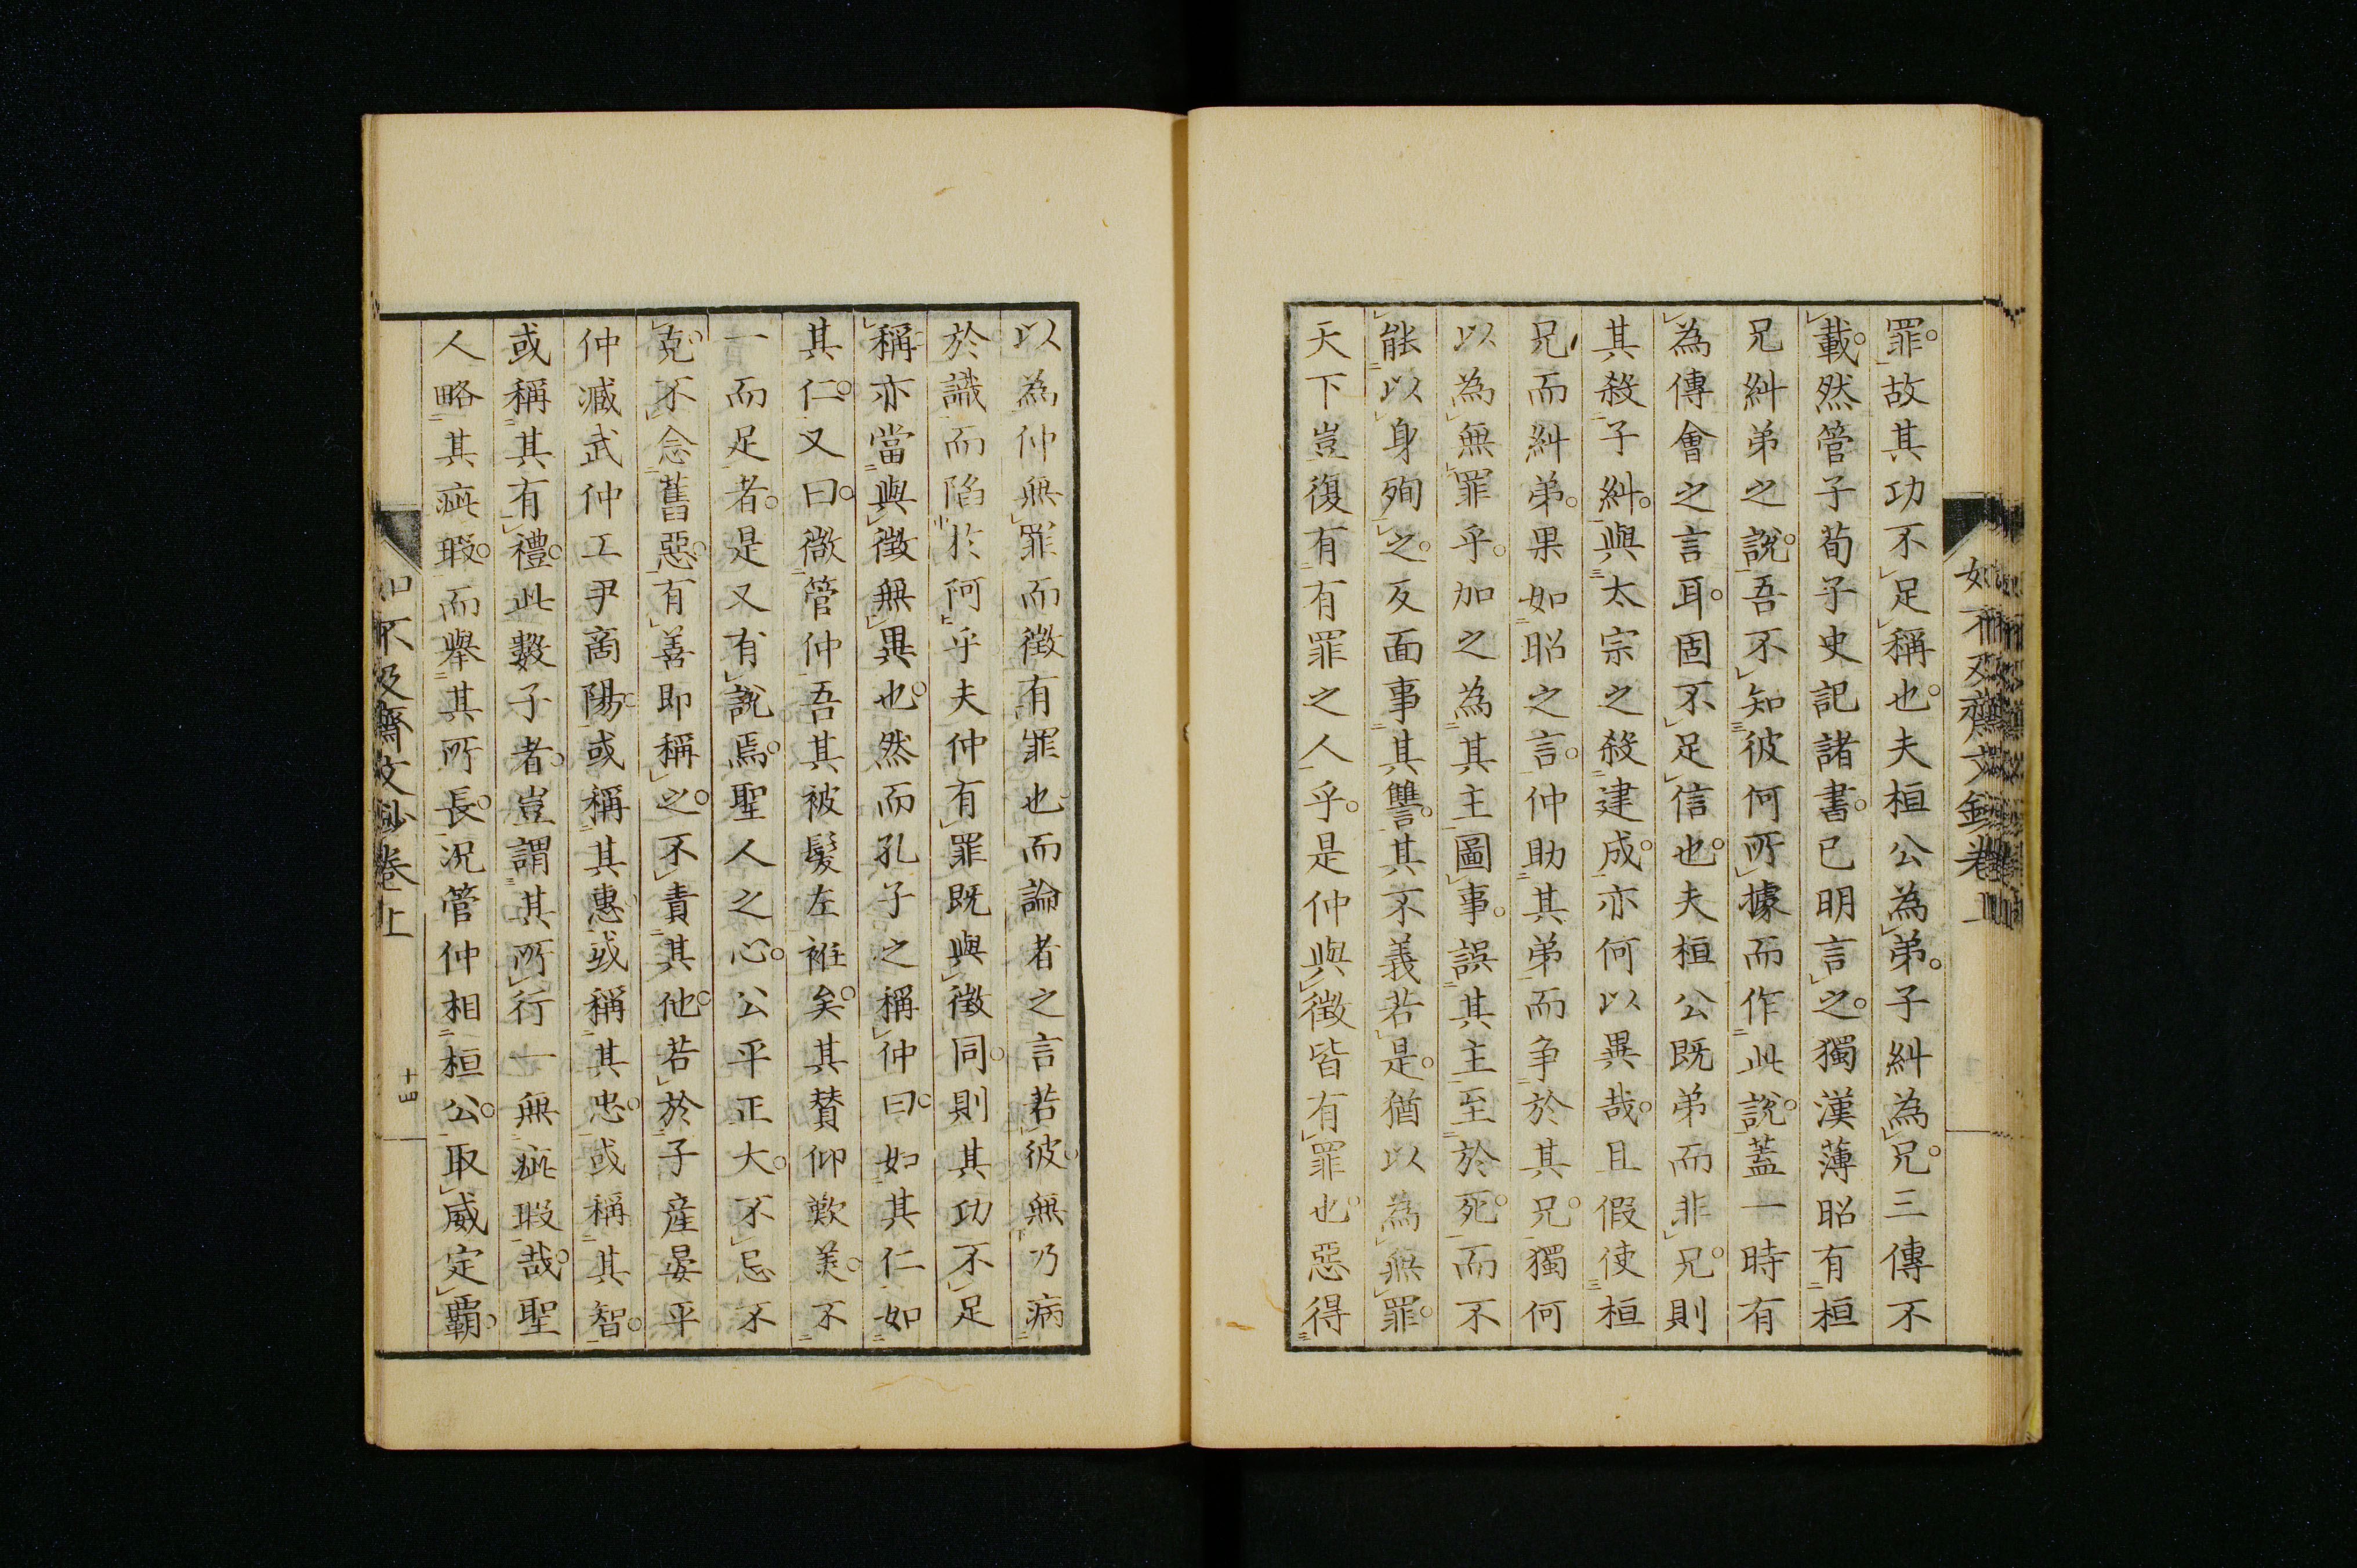 罪。故其功不足稱也。夫桓公為弟。子糾為兄。三傳不
載。然管子荀子史記諸書。已明言之。獨漢薄昭有桓
兄糾弟之說。吾不知彼何所據而作此說。蓋一時有
為傳會之言耳。固不足信也。夫桓公既弟而非兄。則
其殺子糾。與太宗之殺建成。亦何以異哉。且假使桓
兄而糾弟。果如昭之言。仲助其弟而爭於其兄。獨何
以為無罪乎。加之為其主圖事。誤其主至於死。而不
能以身殉之。反面事其讐。其不義若是。猶以為無罪。
天下豈復有有罪之人乎。是仲與徵皆有罪也。惡得
以為仲無罪而徵有罪也。而論者之言若彼。無乃病
於識而陷於阿乎。夫仲有罪既與徵同。則其功不足
稱。亦當與徵無異也。然而孔子之稱仲曰。如其仁如
其仁。又曰。微管仲吾其被髮左衽矣。其賛仰歎美。不
一而足者。是又有說焉。聖人之心。公平正大。不忌不
克。不念舊惡。有善即稱之。不責其他。若於子産晏平
仲臧武仲工尹商陽。或稱其惠。或稱其忠。或稱其智。
或稱其有禮。此數子者。豈謂其所行一無疵瑕哉。聖
人略其疵瑕。而舉其所長。況管仲相桓公。取威定霸。
如不及齋文鈔卷上
十四